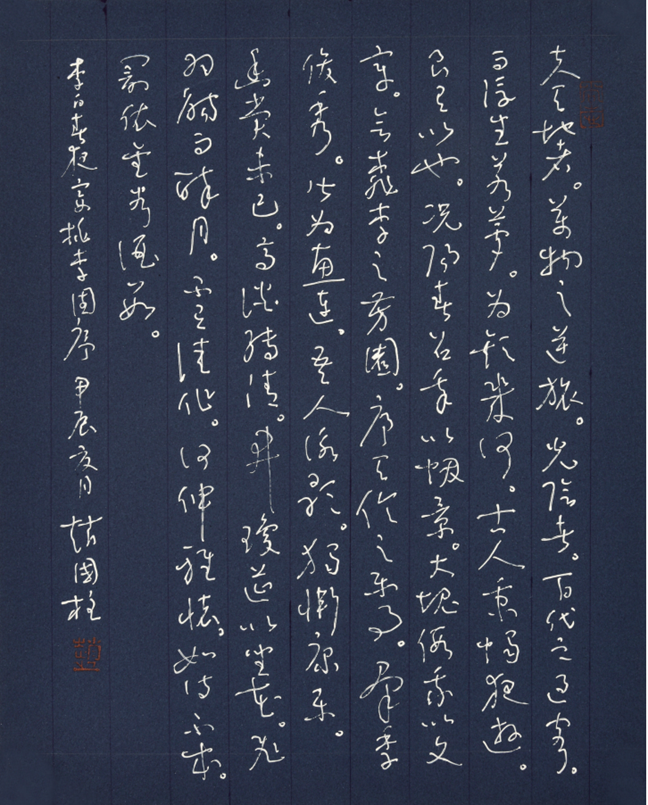 夫天地者。萬物之逆旅。光陰者。百代之過客。
而浮生若夢。為歡幾何。古人秉燭夜遊。
良有以也。況陽春召我以煙景。大塊假我以文
章。會桃李之芳園。序天倫之樂事。群季
俊秀。皆為惠連。吾人詠歌。獨慚康樂。
幽賞未已。高談轉清。開瓊筵以坐花。飛
羽觴而醉月。不有佳作。何伸雅懷。如詩不成。
罰依金谷酒數。
李白春夜宴桃李園序 甲辰夏月 趙國柱